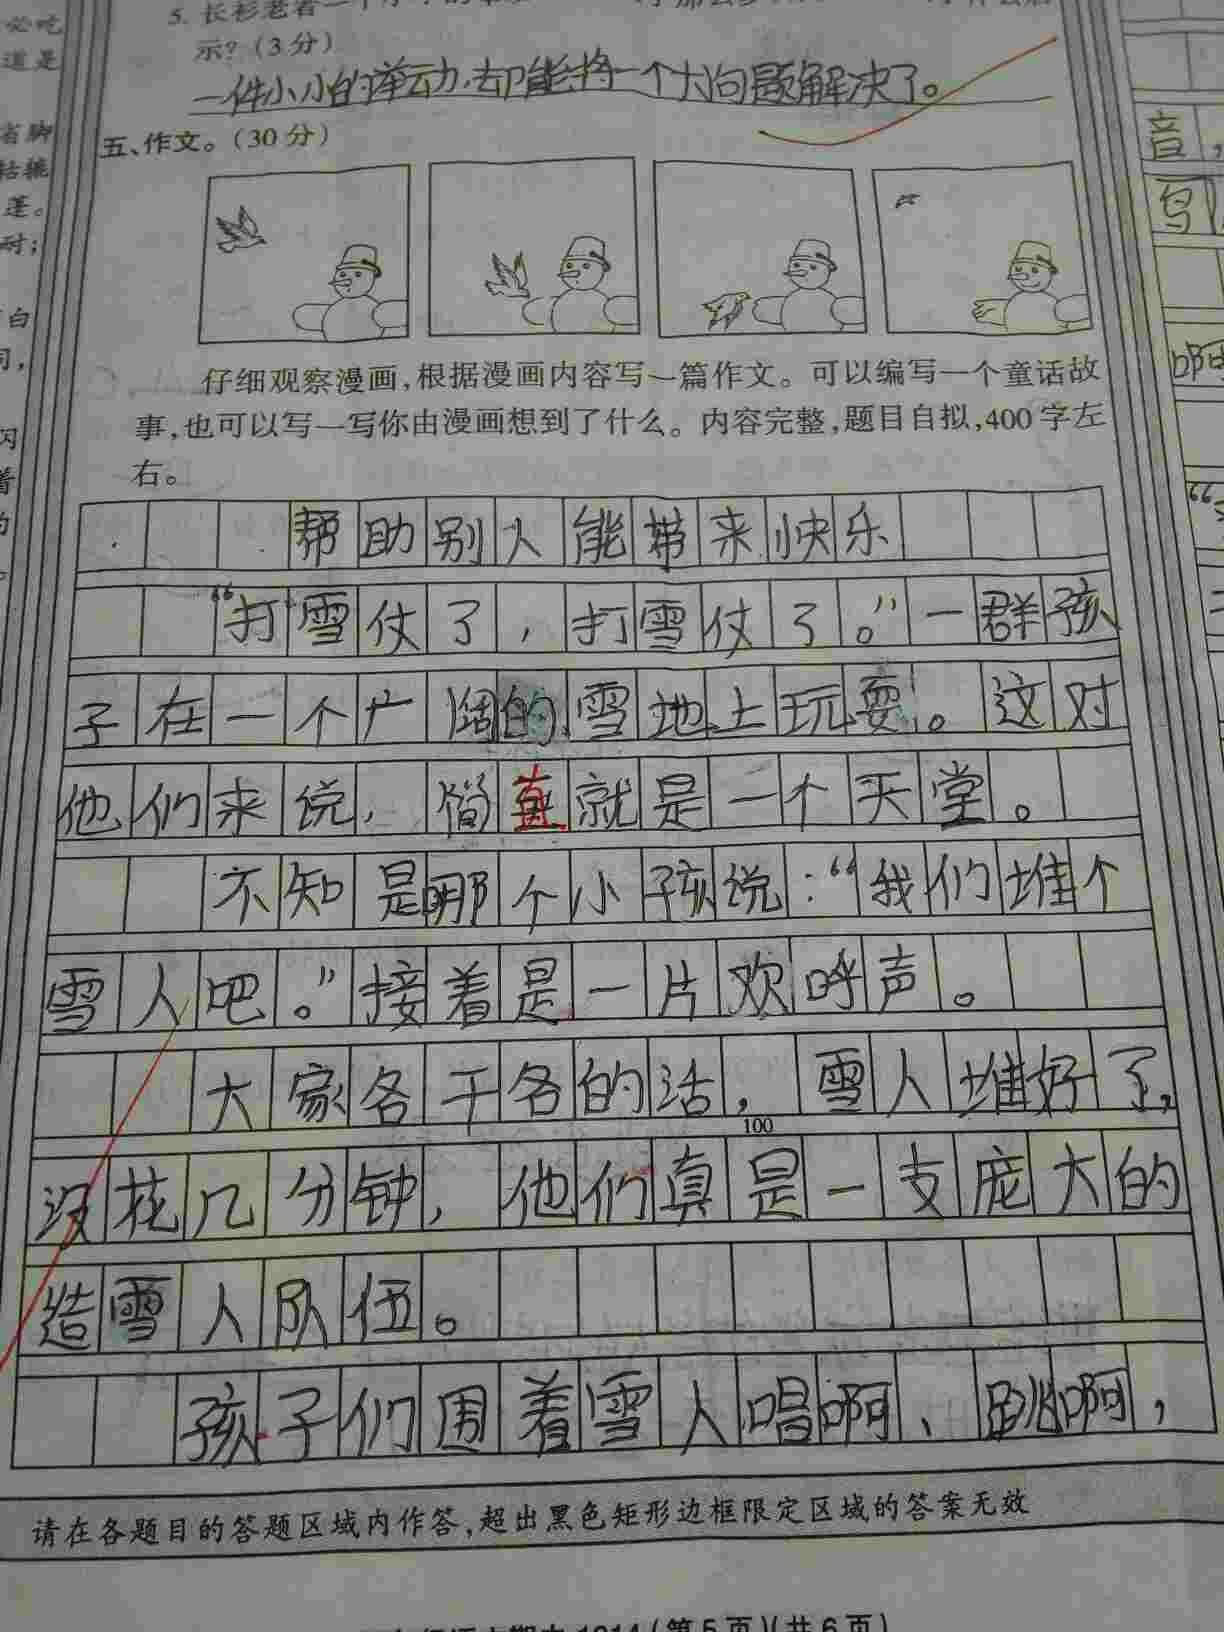 必吃
道是
省脚
枯桃
莲。
耐；
白
闪
着
5. 长衫老者一个小小的举
示？(3分)
一件小小的举动，却能将一个大问题解决了。
五、作文。(30分)
仔细观察漫画，根据漫画内容写一篇作文。可以编写一个童话故
事，也可以写一写你由漫画想到了什么。内容完整，题目自拟，400字左
右。
帮助别人能带来快乐
“打雪仗了，打雪仗了。”一群孩
子在一个广阔的雪地上玩耍。这对
他们来说，简直就是一个天堂。
不知是哪个小孩说：“我们堆个
雪人吧。”接着是一片欢呼声。
大家各干各的活，雪人堆好了，
100
没花几分钟，他们真是一支庞大的
造雪人队伍。
孩子们围着雪人唱啊、跳啊，
请在各题目的答题区域内作答，超出黑色矩形边框限定区域的答案无效
1014(第5页)(共6页)
音，
鸟
啊